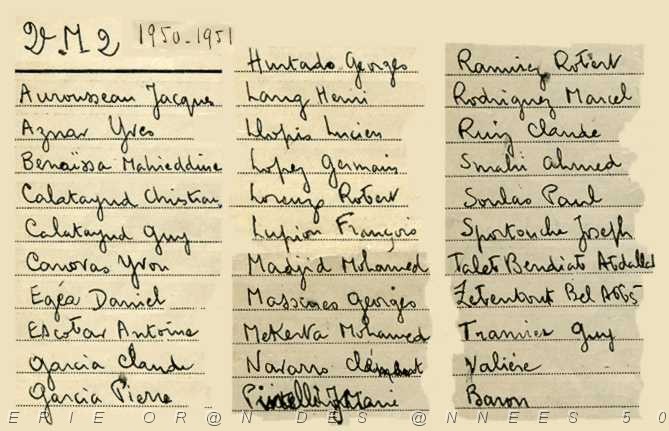 2e M 2 1950-1951
Aurousseau Jacques
Aznar Yves
Benaïssa Mahieddine
Calatayud Christian
Calatayud Guy
Canovas Yvon
Egéa Daniel
Escobar Antoine
Garcia Claude
Garcia Pierre
Hurtado Georges
Lang Henri
Llopis Lucien
Lopez Germain
Lorenzo Robert
Lupion François
Madjid Mohamed
Massines Georges
Mekerba Mohamed
Navarro
Marie
Ramirez Robert
Rodriguez Marcel
Ruiz Claude
Smahi Ahmed
Soulas Paul
Sportouche Joseph
Talet Bendiab Abdallah
Bel Abbés
Tramier Guy
Valière
Baron
E R I E O R @ N D E S @ N N E E S 5 0